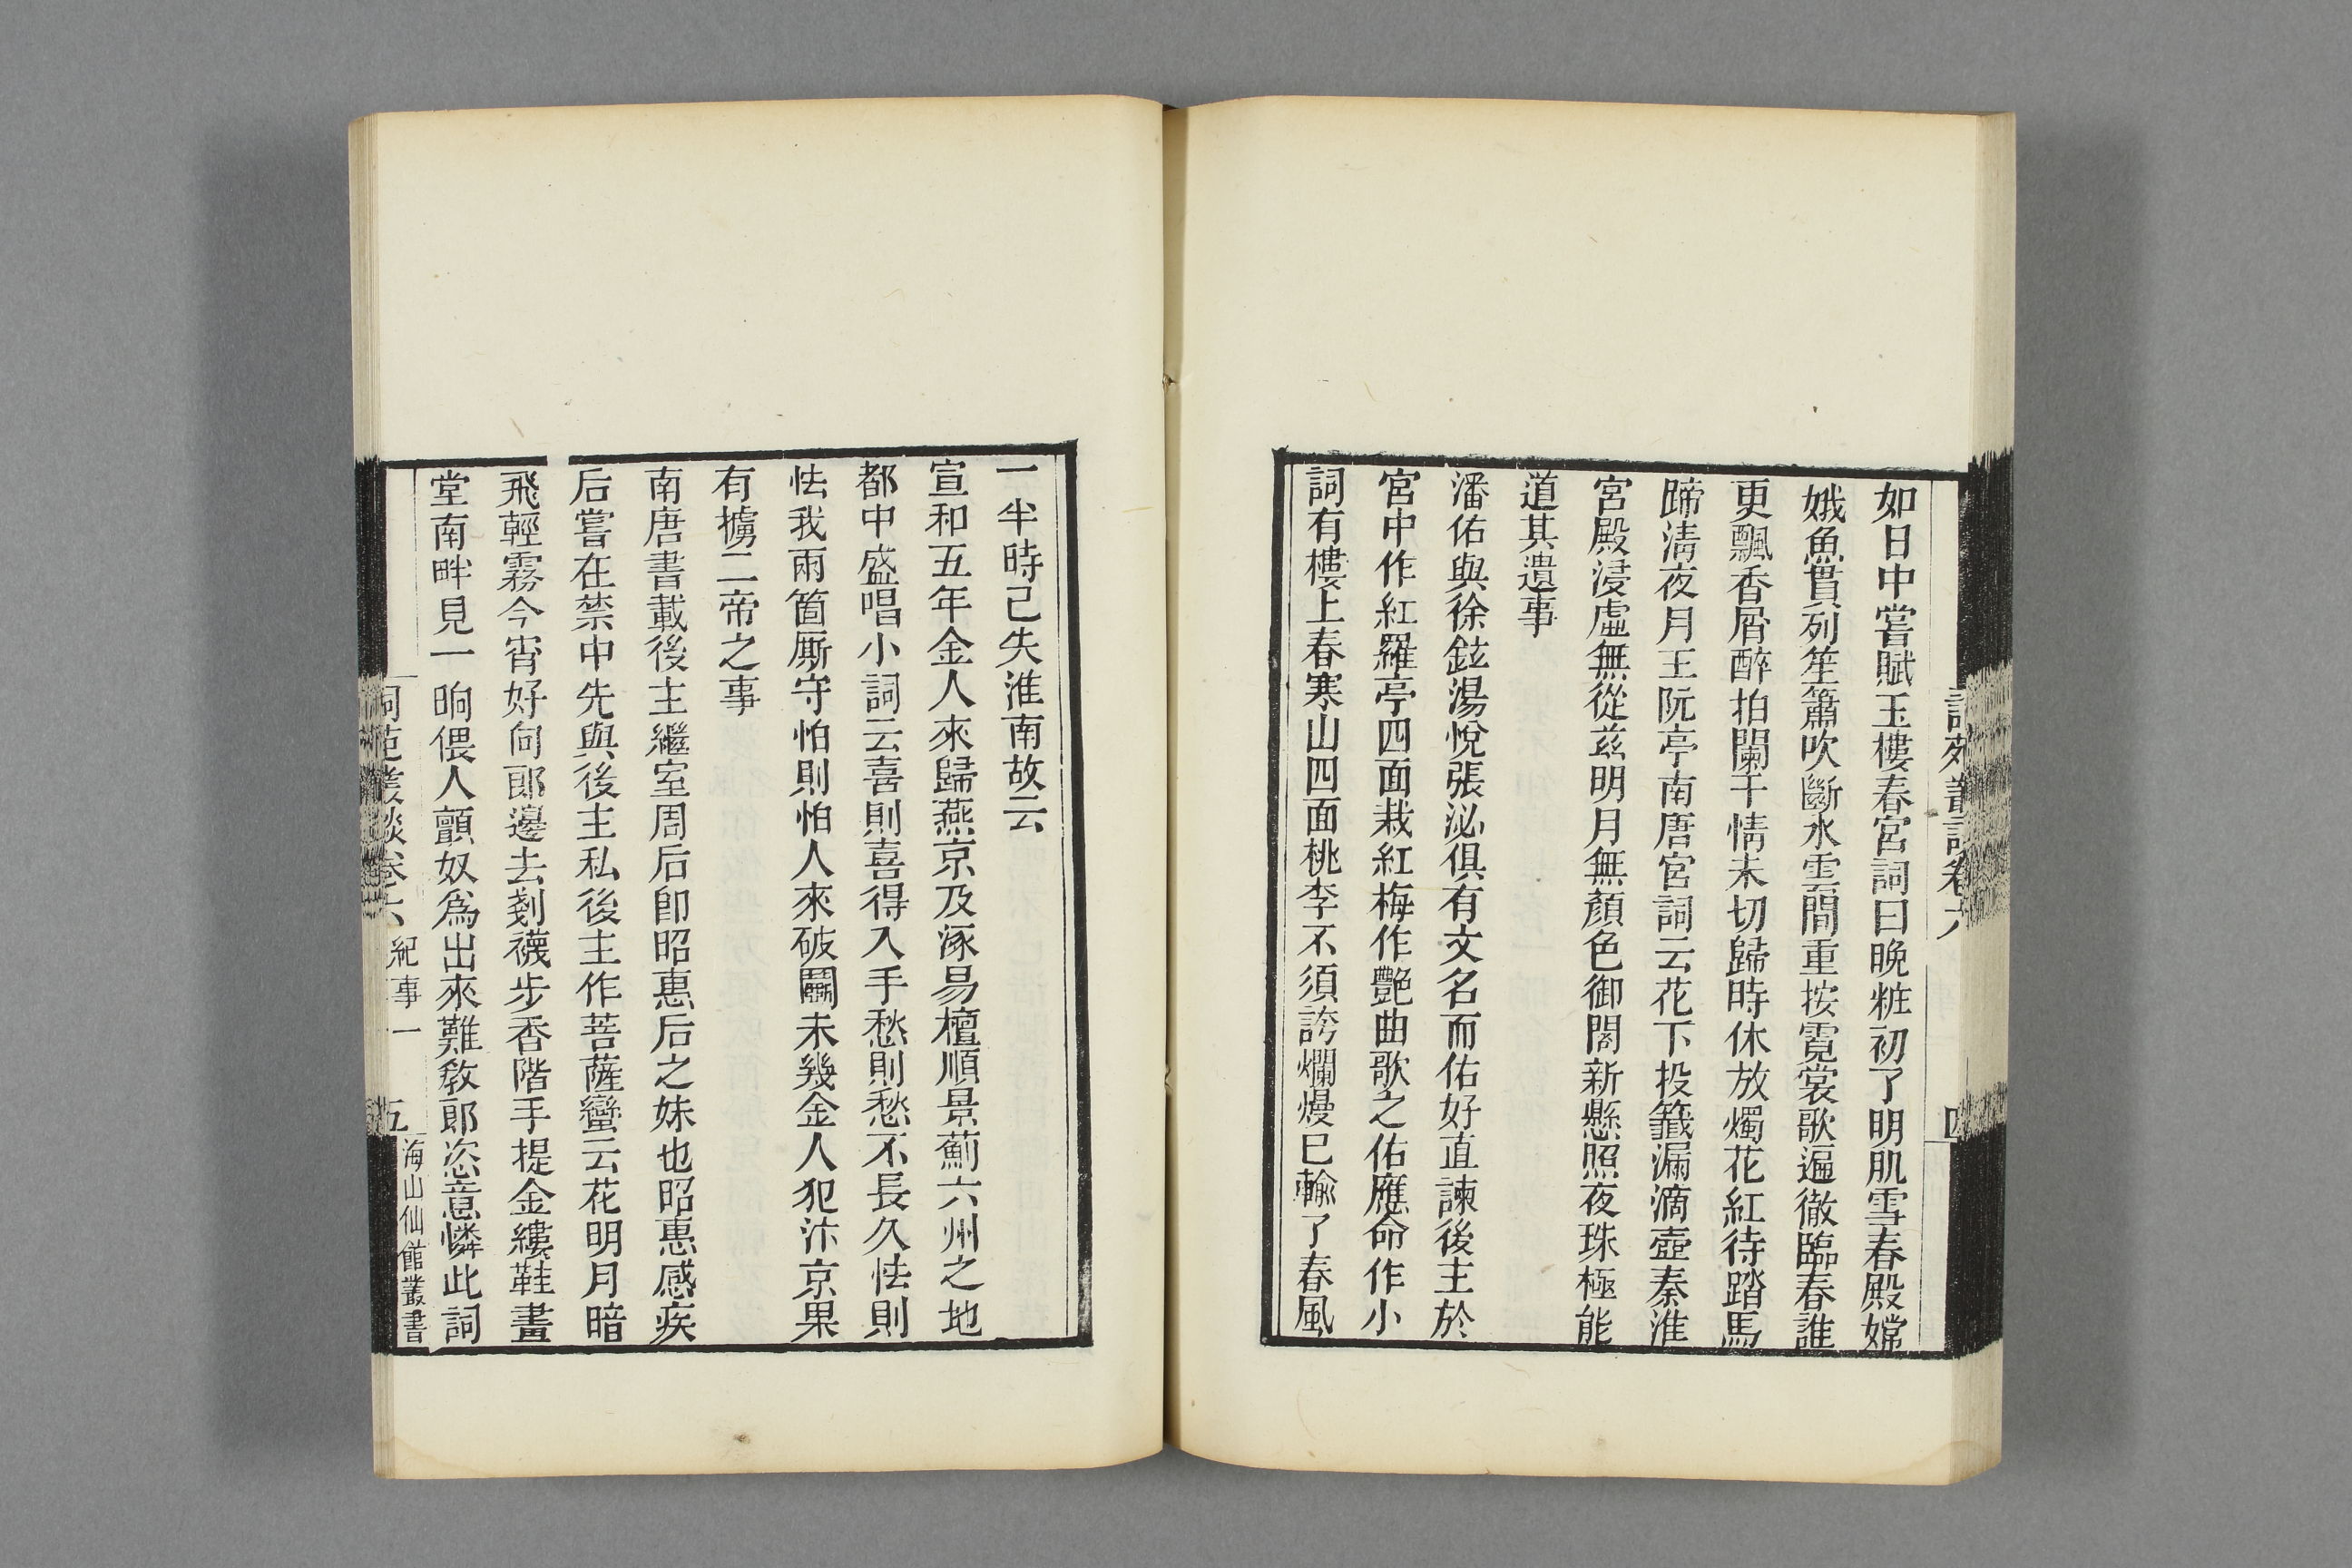 如日中嘗賦玉樓春宮詞曰晚粧初了明肌雪春殿嫦
娥魚貫列笙簫吹斷水雲間重按霓裳歌遍徹臨春誰
更飄香屑醉拍闌干情未切歸時休放燭花紅待踏馬
蹄淸夜月王阮亭南唐宮詞云花下投籤漏滴壺秦淮
宮殿浸虛無從茲明月無顏色御閣新懸照夜珠極能
道其遺事
潘佑與徐鉉湯悅張泌俱有文名而佑好直諫後主於
宮中作紅羅亭四面栽紅梅作艷曲歌之佑應命作小
詞有樓上春寒山四面桃李不須誇爛熳已輸了春風
一半時己失淮南故云
宣和五年金人來歸燕京及涿易檀順景薊六州之地
都中盛唱小詞云喜則喜得入手愁則愁不長久怯則
怯我兩箇厮守怕則怕人來破鬭未幾金人犯汴京果
有擄二帝之事
南唐書載後主繼室周后卽昭惠后之妹也昭惠感疾
后嘗在禁中先與後主私後主作菩薩蠻云花明月暗
飛輕霧今宵好向郎邊去剗襪步香階手提金縷鞋畫
堂南畔見一晌偎人顫奴爲出來難敎郎恣意憐此詞
詞苑叢談卷六 紀事一 五 海山仙館叢書